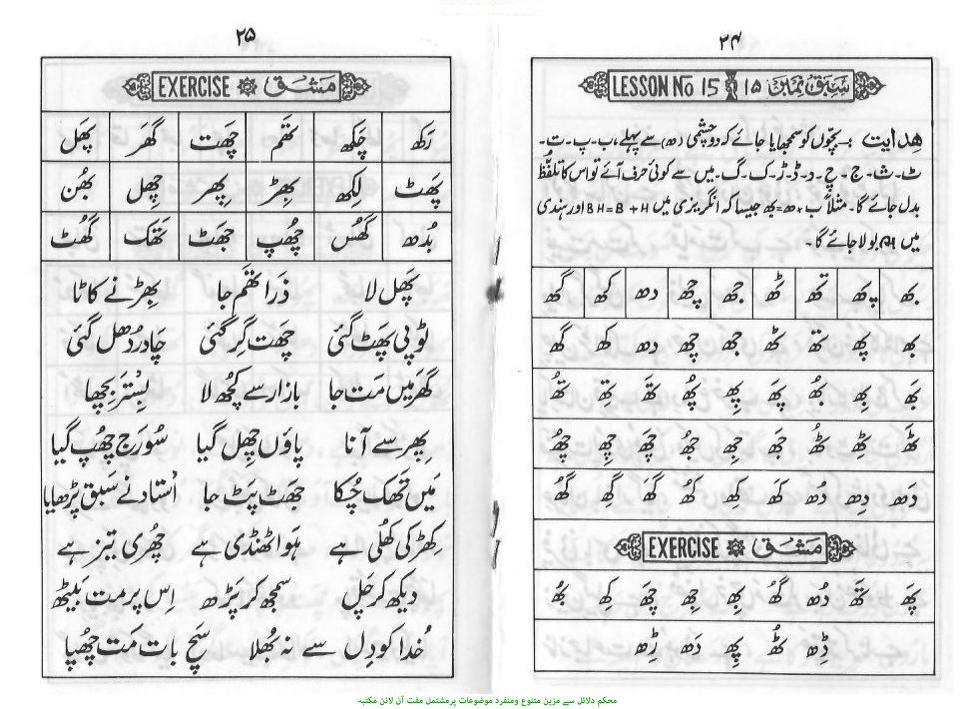 ۲۴
LESSON No 15 سبق نمبر ۱۵
ھدایت :۔ بچّوں کو سمجھایا جائے کہ دوچشمی (ھ) سے پہلے، ب۔ پ۔ ت۔
ٹ۔ ث۔ ج۔ چ۔ د۔ ڈ۔ ڑ۔ ک۔ گ۔ میں سے کوئی حرف آئے تو اس کا تلفّظ
بدل جائے گا۔ مثلاً ب + ھ = بھ جیسا کہ انگریزی میں BH=B+H اور ہندی
میں بولا جائے گا۔
بھ پھ تھ ٹھ جھ چھ دھ کھ گھ
بھ پھ تھ ٹھ جھ چھ دھ کھ گھ
بَھ بِھ بُھ پَھ پِھ پُھ تَھ تِھ تُھ
ٹَھ ٹِھ ٹُھ جَھ جِھ جُھ چَھ چِھ چُھ
دَھ دِھ دُھ کَھ کِھ کُھ گَھ گِھ گُھ
EXERCISE مشق
پَھ تَھ دُھ گُھ بِھ جِھ چَھ کِھ بُھ
ڈِھ ٹُھ پِھ دَھ ڑِھ
۲۵
EXERCISE مشق
رَکھ چَکھ تَھم چَھت گَھر پَھل
پَھٹ لِکھ بِھڑ پِھر چِھل بُھن
بُدھ گُھس چُھپ جَھٹ تَھک گَھٹ
پَھل لا ذَرا تَھم جا بِھڑ نے کاٹا
ٹوپی پَھٹ گئی چَھت گِر گئی چادر دُھل گئی
گَھر میں مَت جا بازار سے کُچھ لا بِستَر بِچھا
پِھر سے آنا پاؤں چِھل گیا سُورَج چُھپ گیا
مَیں تَھک چُکا جَھٹ پَٹ جا اُستاد نے سَبق پڑھایا
کِھڑکی کُھلی ہے ہَوا ٹھنڈی ہے چُھری تیز ہے
دیکھ کر چَل سمجھ کر پَڑھ اِس پر مت بَیٹھ
خُدا کو دِل سے نہ بُھلا سَچ بات مَت چُھپا
محکم دلائل سے مزین متنوع ومنفرد موضوعات پر مشتمل مفت آن لائن مکتبہ